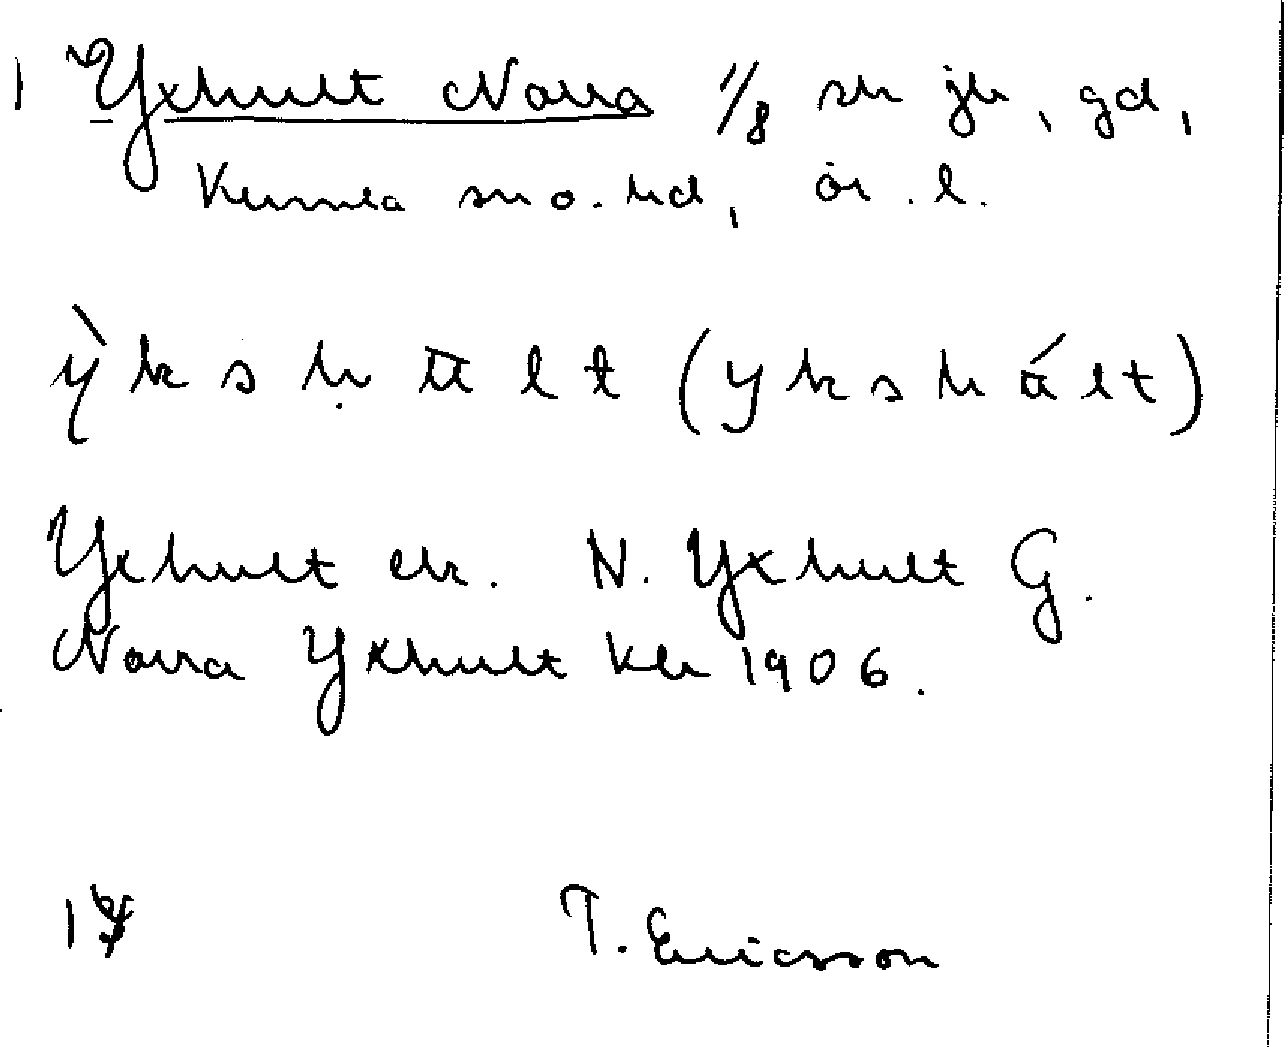 1 Yxhult Norra 1/8 sk jb, gd,
Kumla sn o. hd, ör. l.
ỳkshult (ykshúlt)
Yxhult ek. N. Yxhult G.
Norra Yxhult kb 1906.
T. Ericsson